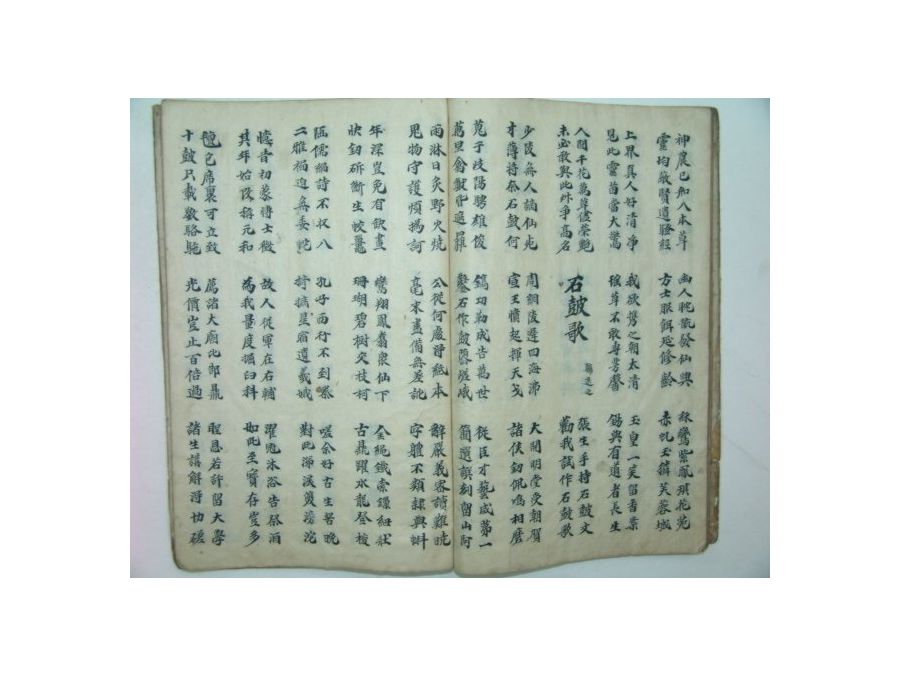 神農已知入本草
靈均欲賢遺騷經
幽人耽翫發仙興
方士服餌延修齡
秋鸞紫鳳琪花苑
赤虬玉麟芙蓉城
上界真人好清净
見此靈苗當大驚
我欲携之朝太清
瑶草不敢專芳馨
玉皇一笑留香案
錫與有道者長生
人間千花萬草儘榮艶
未必敢與此草爭高名
石皷歌 韓退之
張生手持石皷文
勸我試作石皷歌
少陵無人謫仙死
才薄將奈石皷何
周綱陵遲四海沸
宣王憤起揮天戈
大開明堂受朝賀
諸侯釰佩鳴相磨
蒐于岐陽騁雄俊
萬里禽獸皆遮羅
鐫功勒成告萬世
鑿石作皷隳嵯峨
從臣才藝咸第一
簡選譔刻留山阿
雨淋日炙野火燒
鬼物守護煩撝訶
公從何處得紙本
毫末盡備無差訛
辭嚴義密讀難曉
字軆不類隷與蝌
年深豈免有缺畫
快釰斫斷生蛟鼉
鸞翔鳳翥衆仙下
珊瑚碧樹交枝柯
金繩鐵索鎖紐壯
古鼎躍水龍騰梭
陋儒編詩不收入
二雅褊迫無委蛇
孔子西行不到秦
掎摭星宿遺羲娥
嗟余好古生苦晚
對此涕淚雙滂沱
憶昔初蒙博士徵
其年始改稱元和
故人從軍在右輔
爲我量度掘臼科
濯冠沐浴告祭酒
如此至寶存豈多
氊包席裹可立致
十皷只載數駱駞
薦諸大廟比郜鼎
光價豈止百倍過
聖恩若許留大學
諸生講解得切磋